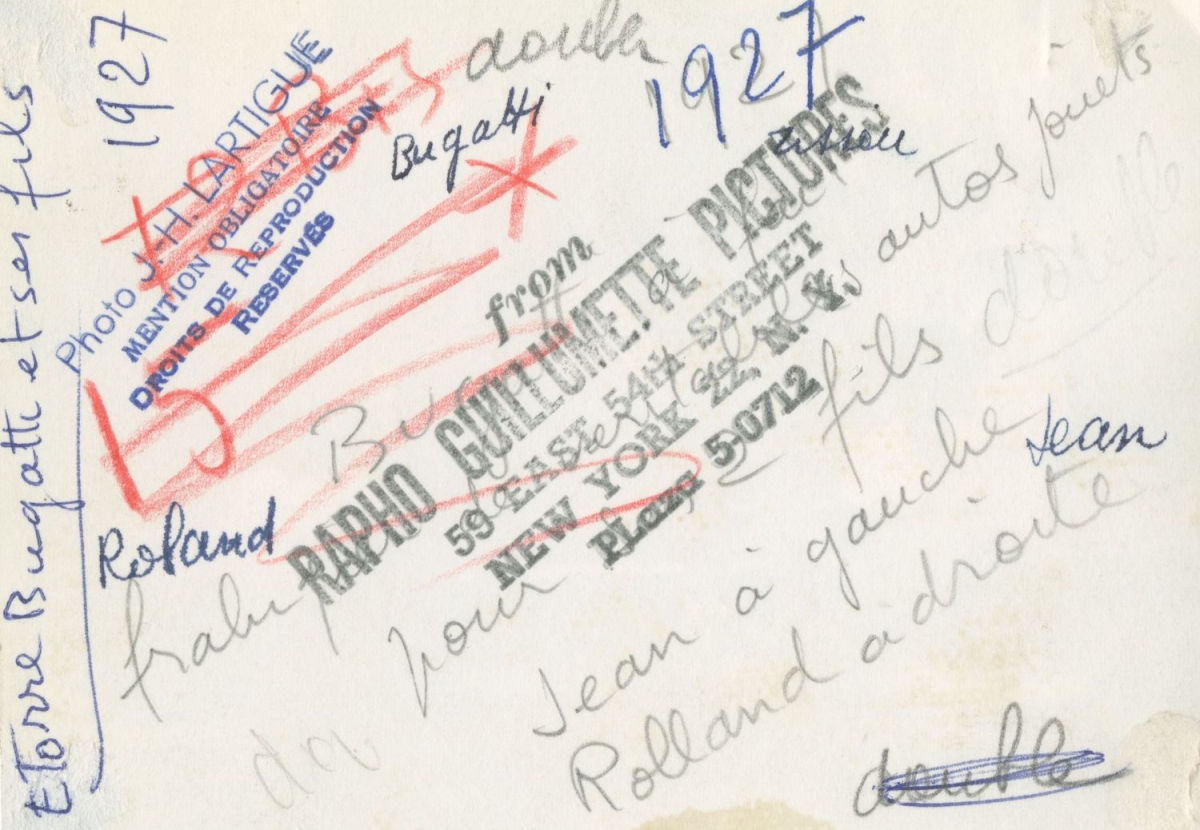 Etorre Bugatti et ses fils
1927
Photo J.-H. LARTIGUE
MENTION OBLIGATOIRE
DROITS DE REPRODUCTION
RESERVÉS
double
Bugatti
1927
from
RAPHO GUILLUMETTE PICTURES
59 EAST 54th STREET
NEW YORK 22, N. Y.
PLaza 5-0712
autos jouets
pour fils
double
Roland
Jean
Jean à gauche
Rolland à droite
double